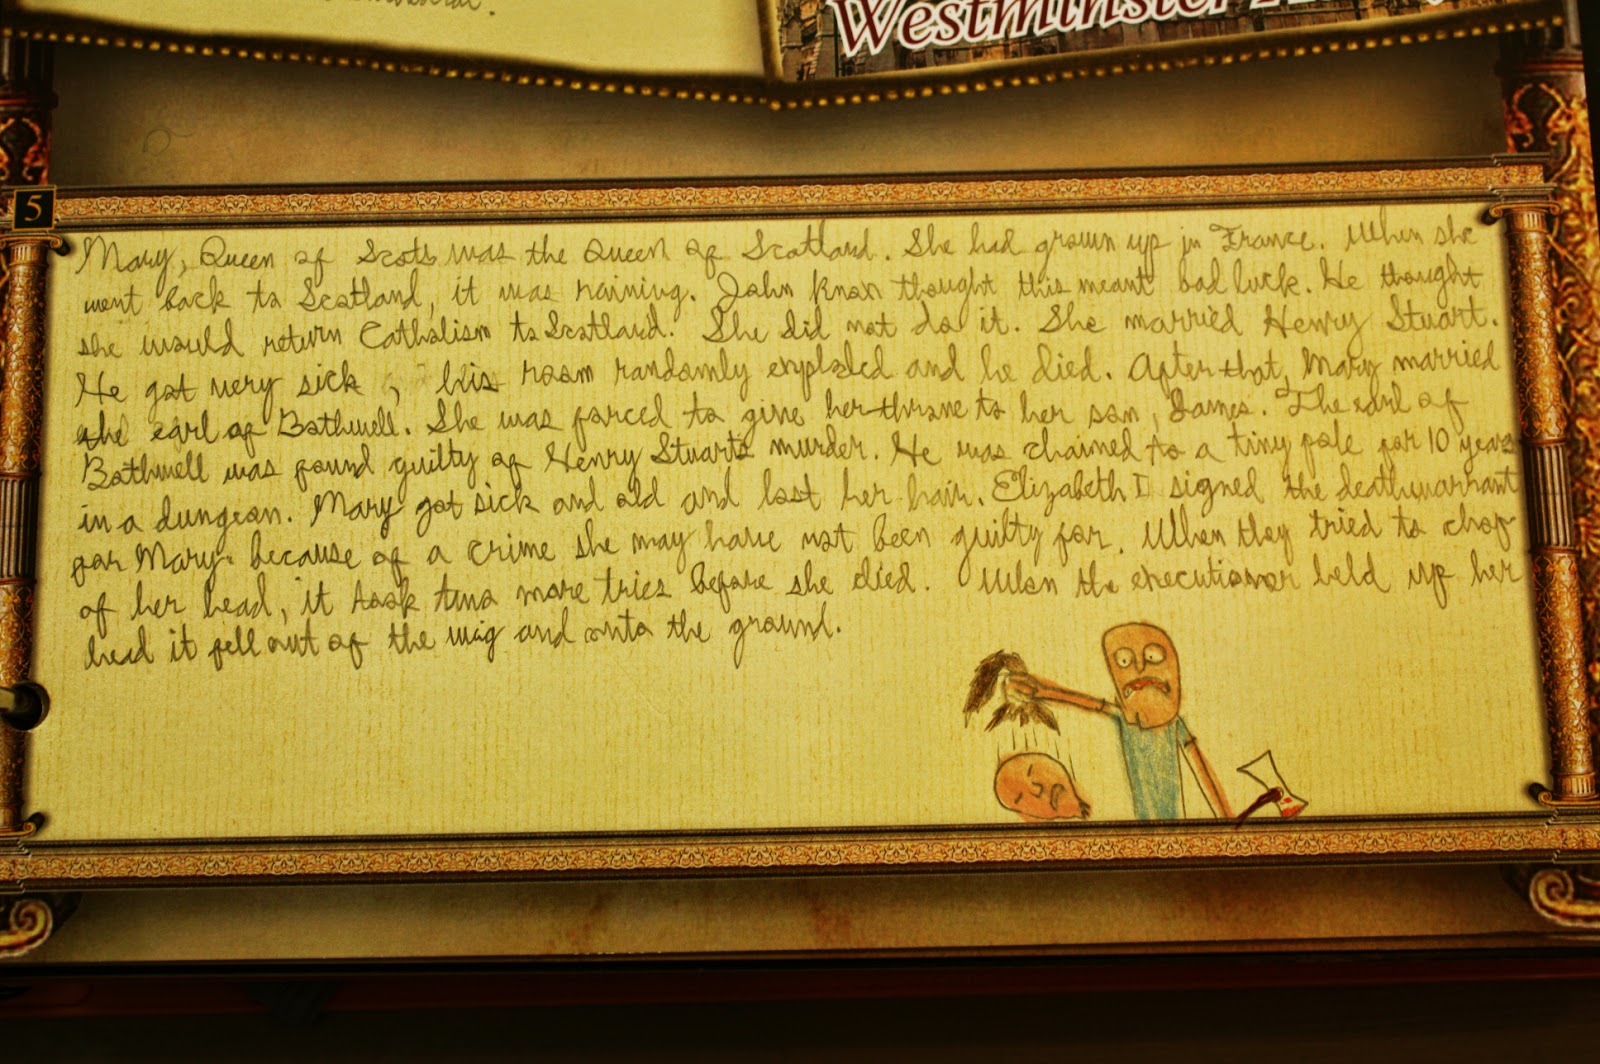 Westminster
5
Mary, Queen of Scots was the Queen of Scotland. She had grown up in France. When she
went back to Scotland, it was raining. John Knox thought this meant bad luck. He thought
she would return Catholism to Scotland. She did not do it. She married Henry Stuart.
He got very sick, his room randomly exploded and he died. After that, Mary married
the earl of Bothwell. She was forced to give her throne to her son, James. The earl of
Bothwell was found guilty of Henry Stuarts murder. He was chained to a tiny pole for 10 years
in a dungeon. Mary got sick and old and lost her hair. Elizabeth I signed the deathwarrant
for Mary because of a crime she may have not been guilty for. When they tried to chop
of her head, it took two more tries before she died. When the executionor held up her
head it fell out of the wig and onto the ground.